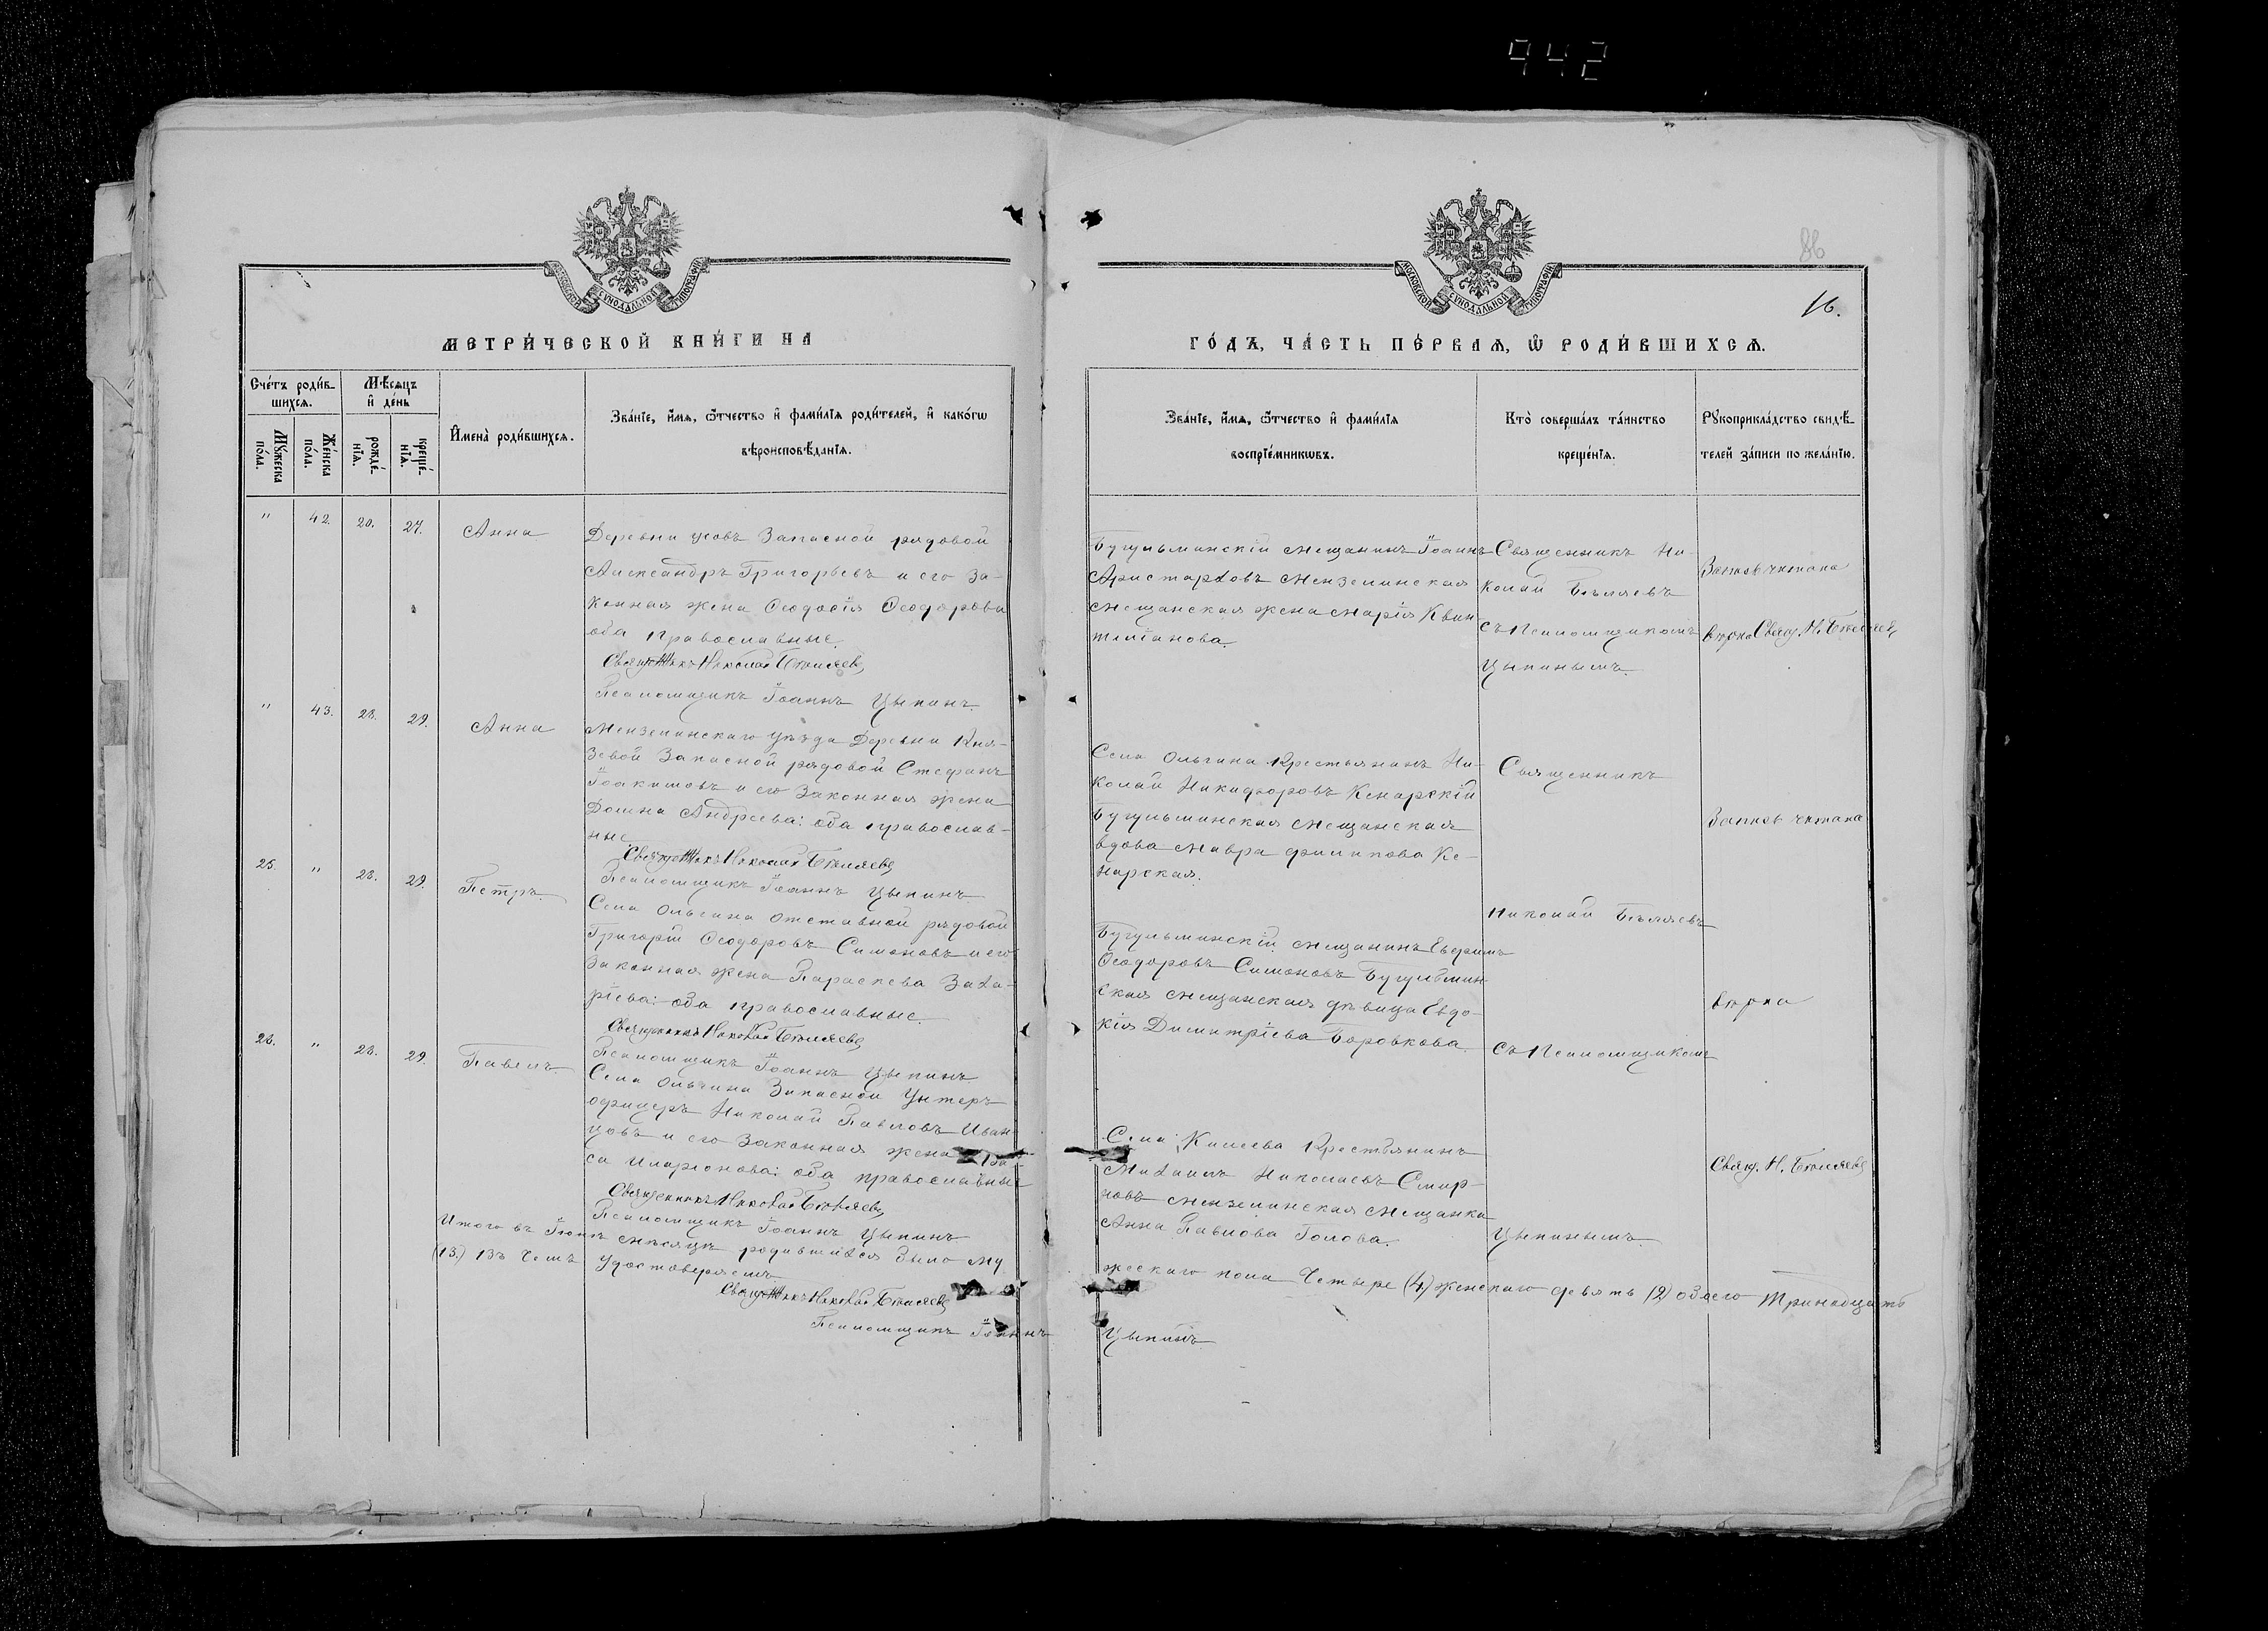 442
86
16.
МОСКОВСКОЙ СѴНОДАЛЬНОЙ ТИПОГРАФІИ
МОСКОВСКОЙ СѴНОДАЛЬНОЙ ТИПОГРАФІИ
МЕТРИ́ЧЕСКОЙ КНИ́ГИ НА
ГО́ДЪ, ЧА́СТЬ ПЕ́РВАѦ, Ѿ РОДИ́ВШИХСѦ.
Сче́тъ роди́в-
шихсѧ.
Мѣ́сѧцъ
и҆ де́нь
Мꙋ́жеска
по́ла.
Же́нска
по́ла.
рожде́-
нїѧ.
креще́-
нїѧ.
И҆мена̀ роди́вшихсѧ.
Зва́нїе, и҆́мѧ, ѻ҆́тчество и҆ фами́лїѧ роди́телей, и҆ како́гѡ
вѣроисповѣ́данїѧ.
Зва́нїе, и҆́мѧ, ѻ҆́тчество и҆ фами́лїѧ
воспрїе́мникѡвъ.
Кто̀ соверша́лъ та́инство
креще́нїѧ.
Рꙋкоприкла́дство свидѣ́-
телей за́писи по жела́нїю.
" 42. 20. 27. Анна
Деревни Запасной рядовой
Александръ Григорьевъ и его за-
конная жена Ѳеодосія Ѳеодорова
оба православные.
Священникъ Николай Бѣляевъ
Псаломщикъ Іоаннъ Цыпинъ.
Бугульминскій мещанинъ Іоаннъ
Аристарховъ Мензелинская
мещанская жена Марія Квин-
тиліанова.
Священникъ Ни-
колай Бѣляевъ
съ Псаломщикомъ
Цыпинымъ.
Запись читана
вѣрна Свящ. Н. Бѣляевъ
" 43. 28. 29. Анна
Мензелинскаго уѣзда Деревни Кня-
зевой Запасной рядовой Стефанъ
Іоакимовъ и его законная жена
Домна Андреева: оба православ-
ные
Священникъ Николай Бѣляевъ
Псаломщикъ Іоаннъ Цыпинъ
Села Ольгина Крестьянинъ Ни-
колай Никифоровъ Кенарскій
Бугульминская мещанская
вдова Мавра Филипова Ке-
нарская.
Священникъ
Запись читана
25. " 28. 29. Петръ.
Села Ольгина отставной рядовой
Григорій Ѳеодоровъ Симоновъ и его
законная жена Параскева Заха-
ріева: оба православные.
Священникъ Николай Бѣляевъ
Псаломщикъ Іоаннъ Цыпинъ
Николай Бѣляевъ
Бугульминскій мещанинъ Ефимъ
Ѳеодоровъ Симоновъ Бугульмин-
ская мещанская дѣвица Евдо-
кія Димитріева Боровкова.
вѣрна
съ Псаломщикомъ
26. " 28. 29. Павелъ.
Села Ольгина Запасной Унтеръ
офицеръ Николай Павловъ Иван-
цовъ и его законная жена
са Иларіонова: оба православные
Священникъ Николай Бѣляевъ
Псаломщикъ Іоаннъ Цыпинъ
Села Крестьянинъ
Михаилъ Николаевъ Смир-
новъ Мензелинская мещанка
Анна Павлова Голова.
Свящ. Н. Бѣляевъ
Цыпинымъ.
Итого въ Іюнѣ мѣсяцѣ родившихся было му
жескаго пола Четыре (4) женскаго девять (9) обоего Тринадцать
(13.) въ чемъ удостоверяемъ
Священникъ Николай Бѣляевъ
Псаломщикъ Іоаннъ
Цыпинъ